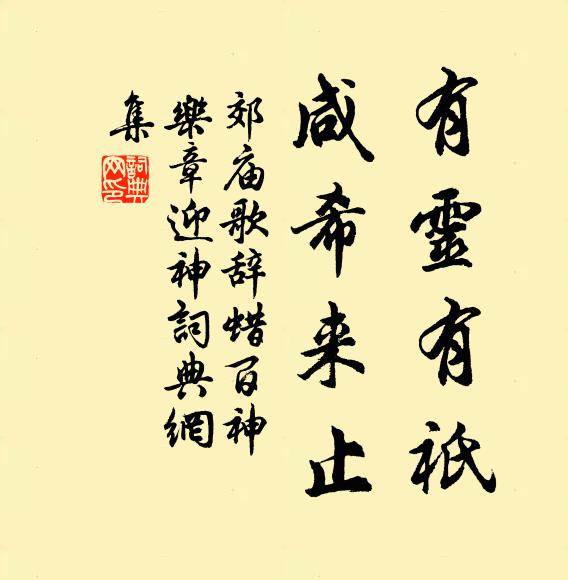 有靈有祇
咸希来止
郊庙歌辞蜡百神
樂章迎神詞典網
集
詞典网印